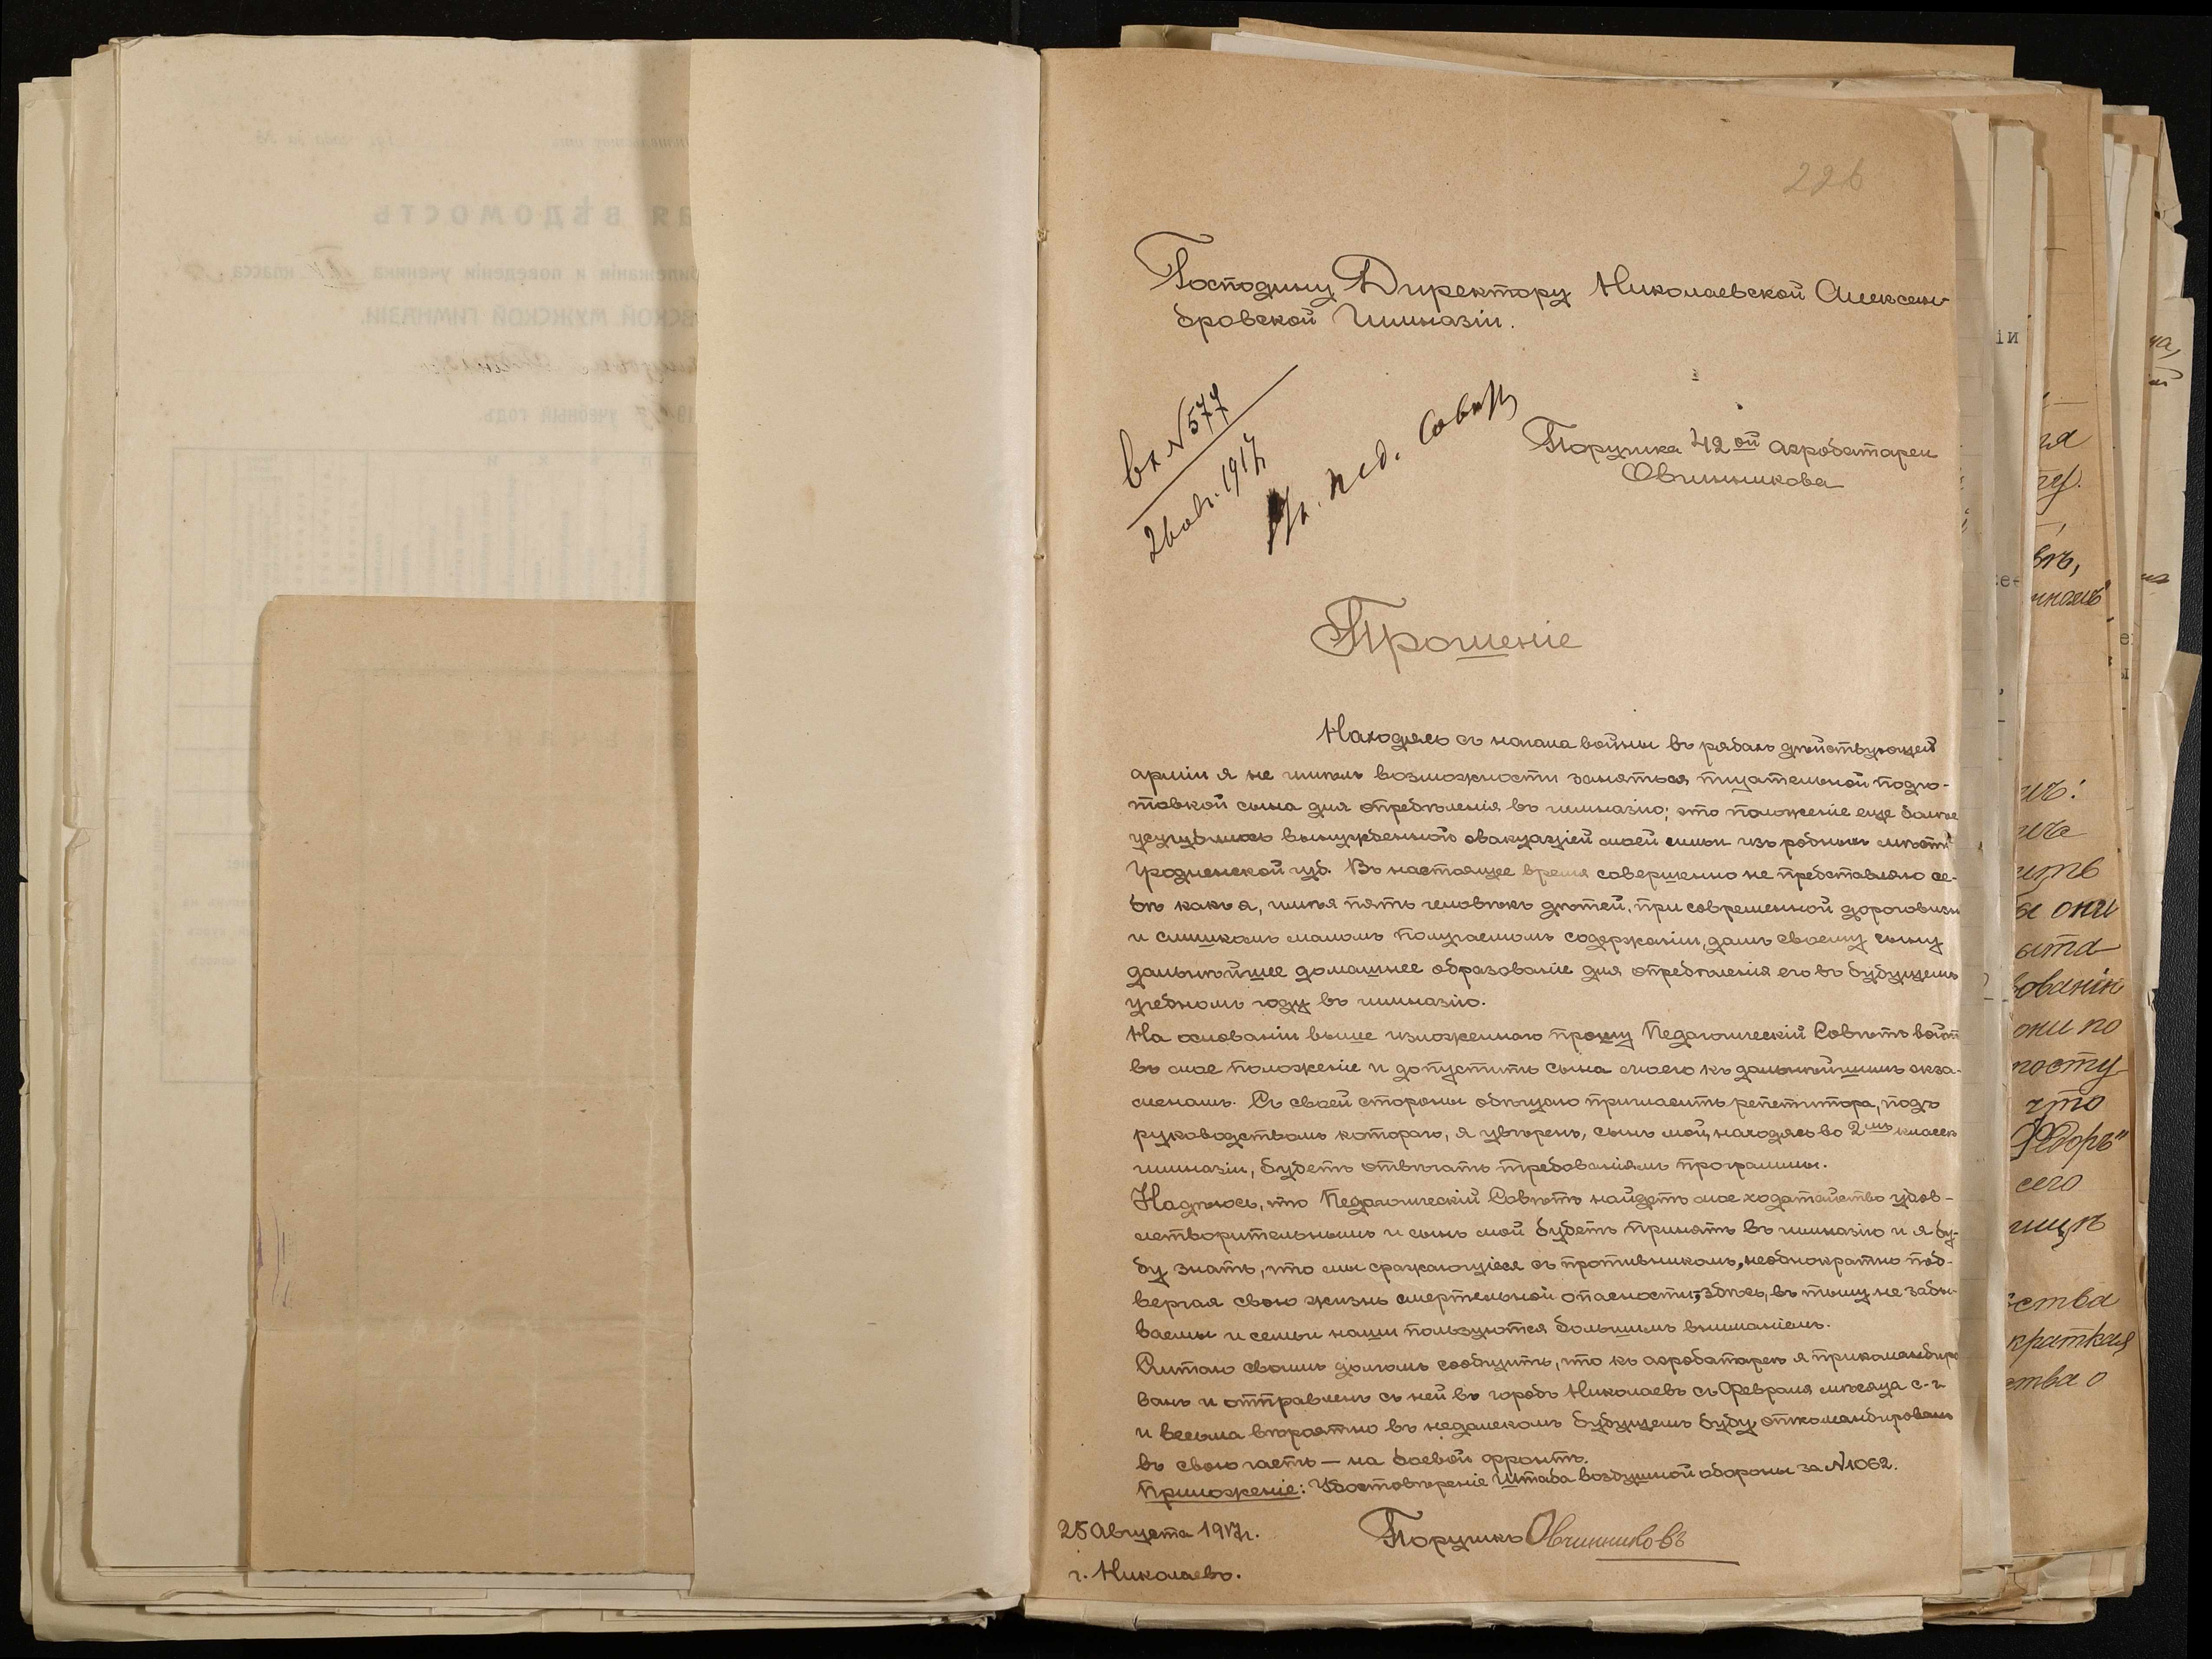 226
Господину Директору Николаевской Алексан-
дровской Гимназіи.
Вх №577
26 авг. 1917
Въ пед. Совѣтъ
Поручика 42ой аэробатареи
Овчинникова
Прошеніе
Находясь съ начала войны въ рядахъ дѣйствующей
арміи я не имѣлъ возможности заняться тщательной подго-
товкой сына для опредѣленія въ гимназію; это положеніе еще болѣе
усугубилось вынужденной эвакуаціей моей семьи изъ родныхъ мѣстъ
Гродненской губ. Въ настоящее время совершенно не представляю се-
бѣ какъ я, имѣя пять человѣкъ дѣтей, при современной дороговизнѣ
и слишкомъ маломъ получаемомъ содержаніи, дамъ своему сыну
дальнѣйшее домашнее образованіе для опредѣленія его въ будущемъ
учебномъ году въ гимназію.
На основаніи выше изложеннаго прошу Педагогическій Совѣтъ войти
въ мое положеніе и допустить сына моего къ дальнѣйшимъ экза-
менамъ. Съ своей стороны обѣщаю пригласить репетитора, подъ
руководствомъ котораго, я увѣренъ, сынъ мой, находясь во 2мъ классѣ
гимназіи, будетъ отвѣчать требованіямъ программы.
Надѣюсь, что Педагогическій Совѣтъ найдетъ мое ходатайство удов-
летворительнымъ и сынъ мой будетъ принятъ въ гимназію и я бу-
ду знать, что мы сражающіеся съ противникомъ, неоднократно под-
вергая свою жизнь смертельной опасности, здѣсь, въ тылу не забы-
ваемы и семьи наши пользуются большимъ вниманіемъ.
Считаю своимъ долгомъ сообщить, что къ аэробатареѣ я прикомандиро
ванъ и отправленъ съ ней въ городъ Николаевъ съ Февраля мѣсяца с-г
и весьма вѣроятно въ недалекомъ будущемъ буду откомандированъ
въ свою часть — на боевой фронтъ.
Приложеніе: Удостовѣреніе Штаба воздушной обороны за №1062.
25 Августа 1917г.
Поручикъ Овчинниковъ
г. Николаевъ.
АЯ ВѢДОМОСТЬ
прилежаніи и поведеніи ученика IV класса
ВСКОЙ МУЖСКОЙ ГИМНАЗІИ.
учебный годъ.
іи
зованіи
они по
посту
что
Ѳедоръ"
сего
ства
краткая
ства о